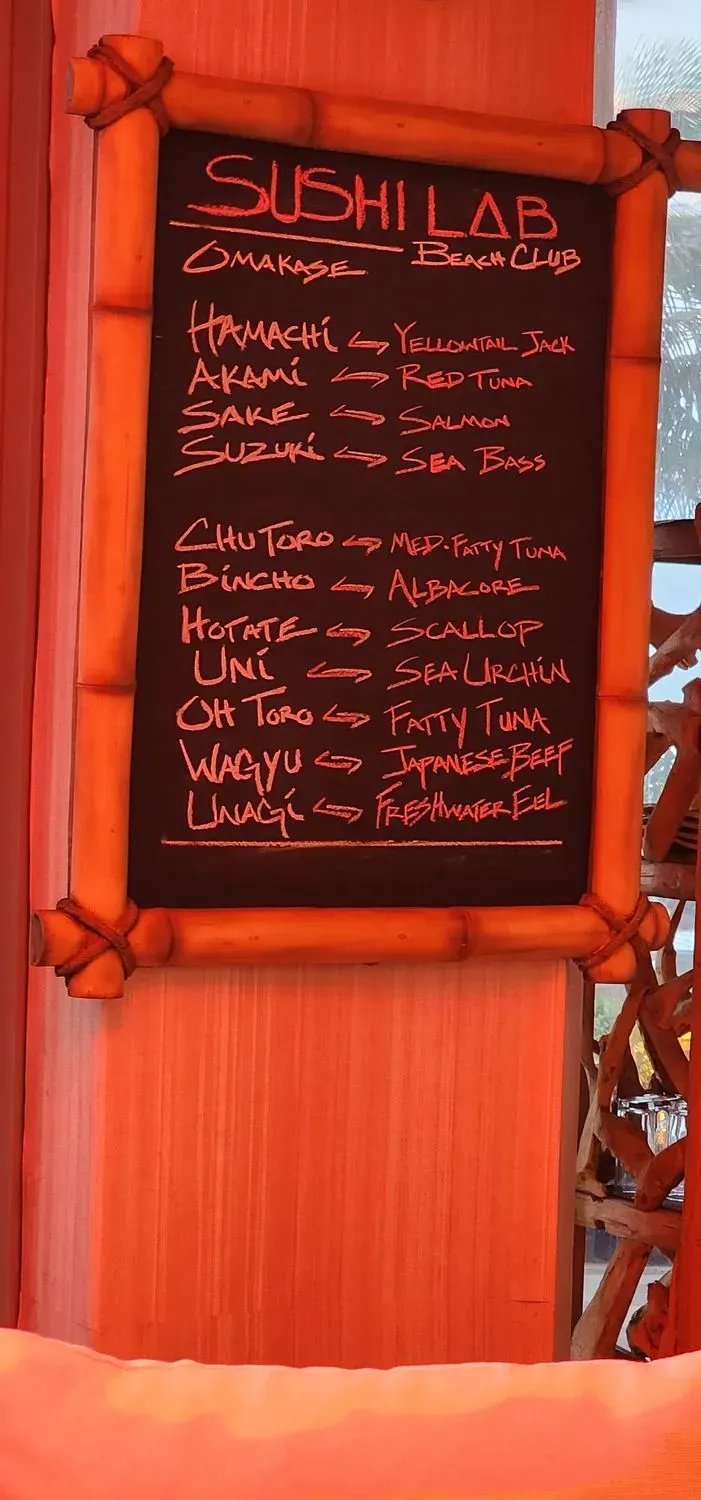 SUSHI LAB
OMAKASE BEACH CLUB
HAMACHI ↔ YELLOWTAIL JACK
AKAMI ↔ RED TUNA
SAKE ↔ SALMON
SUZUKI ↔ SEA BASS
CHU TORO ↔ MED. FATTY TUNA
BINCHO ↔ ALBACORE
HOTATE ↔ SCALLOP
UNI ↔ SEA URCHIN
OH TORO ↔ FATTY TUNA
WAGYU ↔ JAPANESE BEEF
UNAGI ↔ FRESHWATER EEL